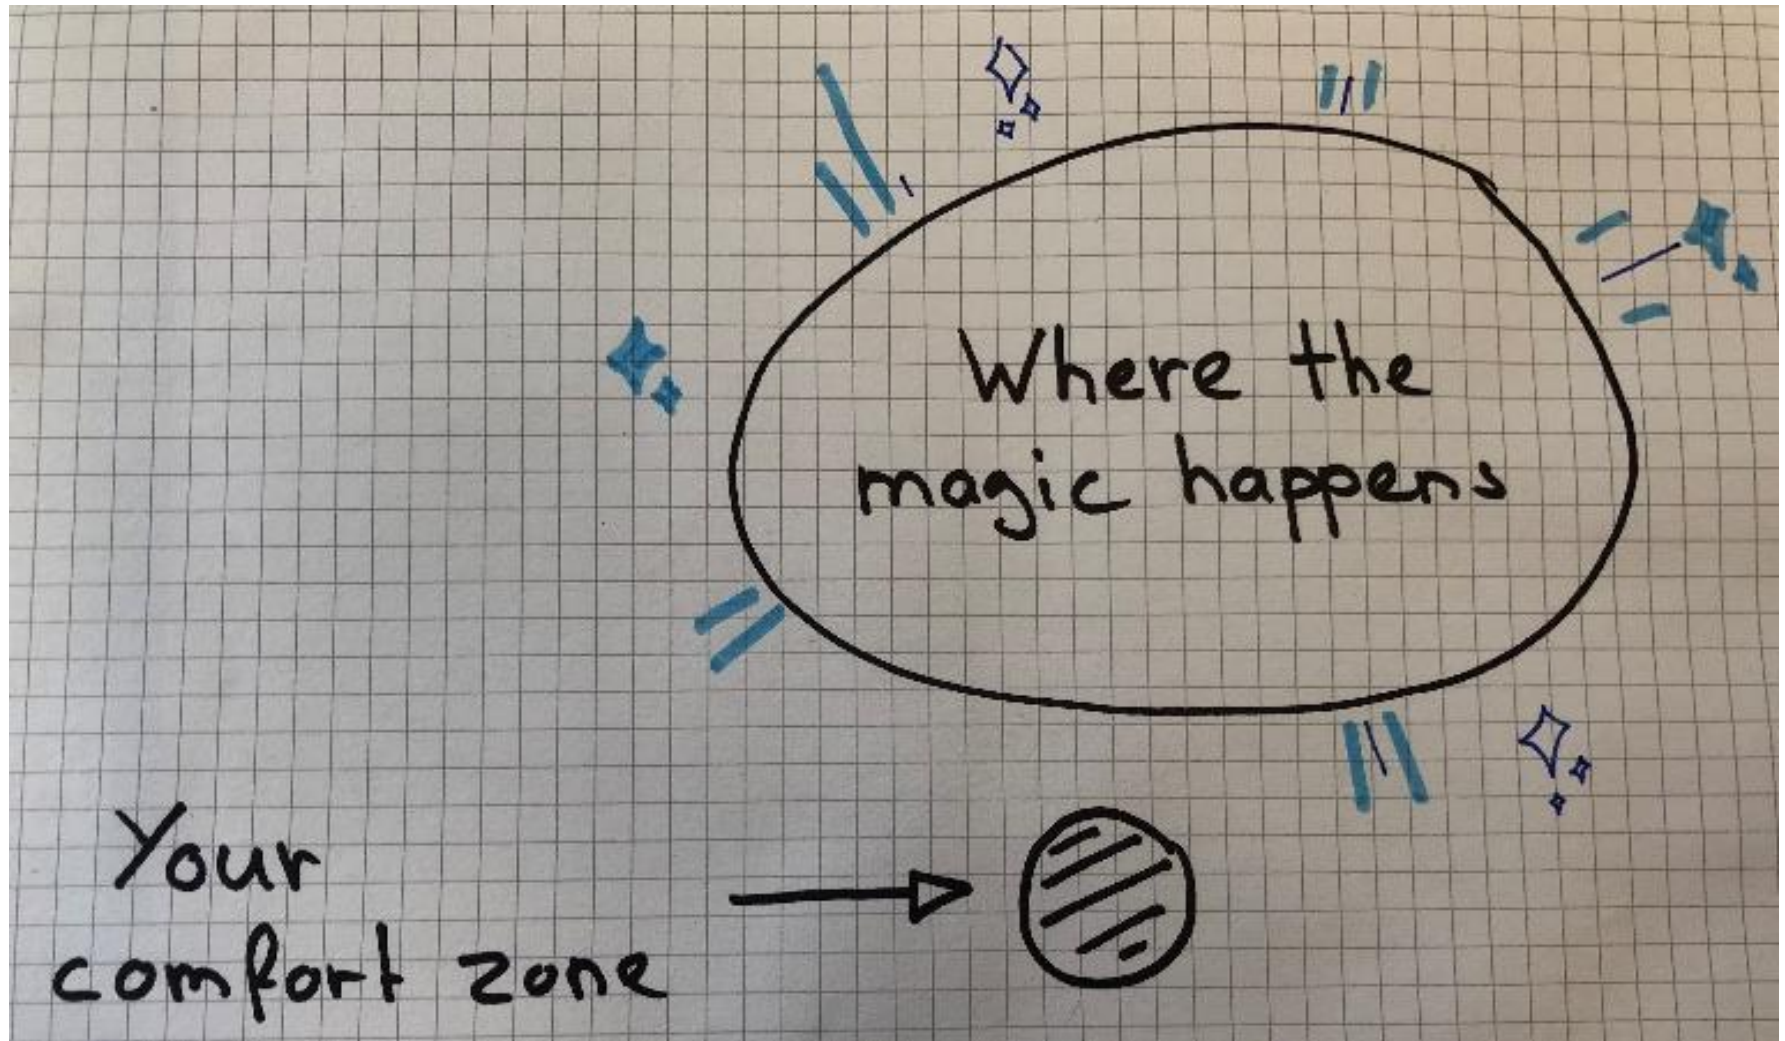 Where the
magic happens
Your
comfort zone